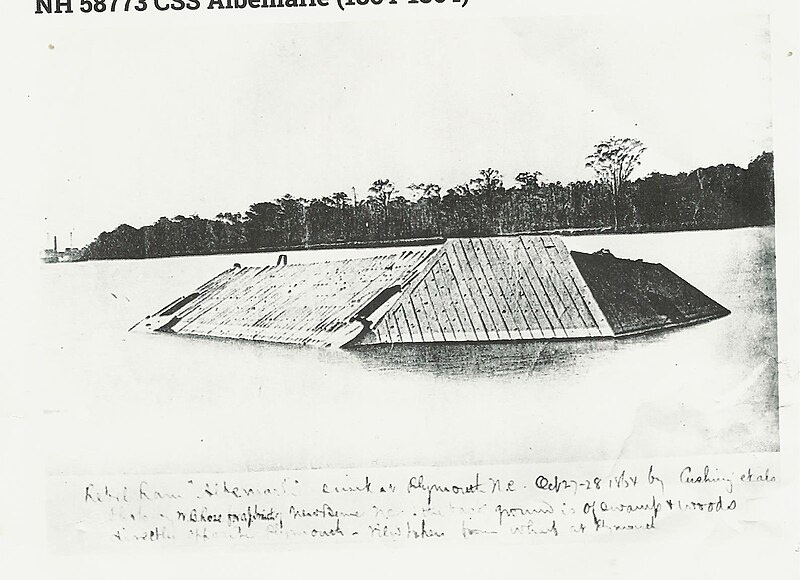 NH 58773 CSS Albemarle (1864-1864)
Rebel Ram "Albemarle" sunk at Plymouth N.C. Oct 27-28 1864 by Cushing et als
New Berne N.C. ground is of swamp & woods
directly opposite Plymouth - View taken from wharf at Plymouth